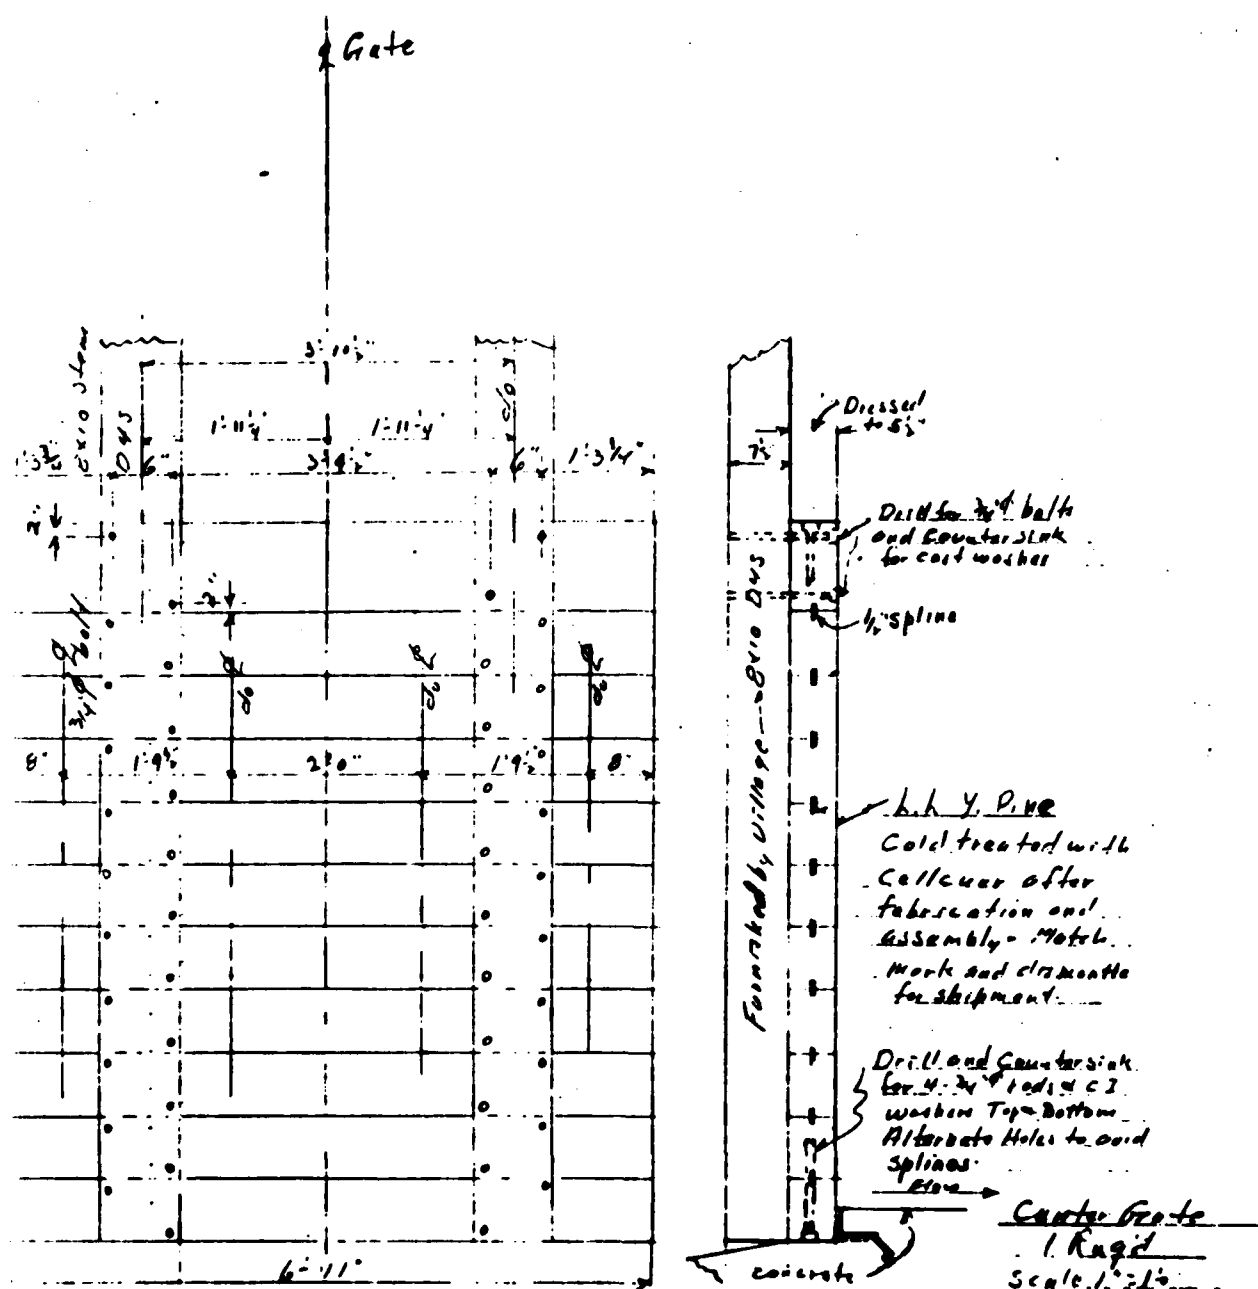 Gate
8x10 Stem
D4S
do
3'-10½"
1'-11¼"
1'-11¼"
1'-3¾"
6"
3'-4½"
6"
1'-3¾"
2"
2"
¾"φ bolt
do
do
do
8"
1'-9½"
2'-0"
1'-9½"
8"
6'-11"
Dressed
to 5½"
7½"
Drill for ¾"φ bolt
and Countersink
for cast washer
½" spline
Furnished by Village - 8x10 D4S
L.L.Y. Pine
Cold treated with
Cellcure after
fabrication and
assembly - Match
mark and dismantle
for shipment
Drill and Countersink
for 4-¾"φ rods & C I
washers Top & Bottom
Alternate Holes to avoid
splines
Flow
concrete
Center Gate
1 Req'd